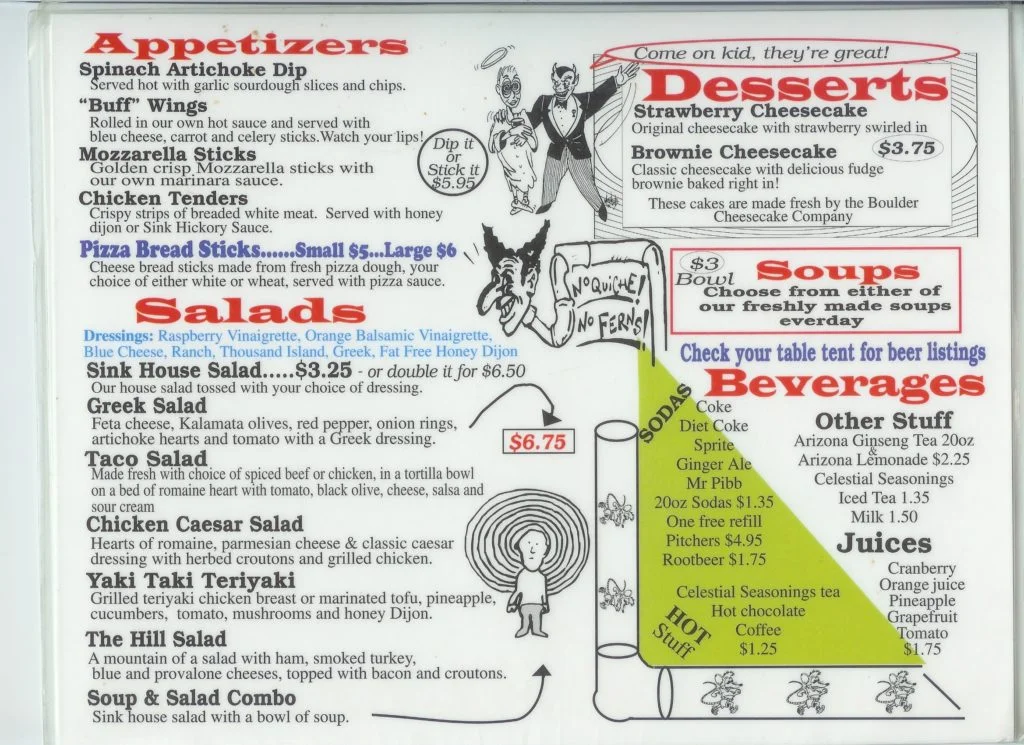 Appetizers
Spinach Artichoke Dip
Served hot with garlic sourdough slices and chips.
“Buff” Wings
Rolled in our own hot sauce and served with
bleu cheese, carrot and celery sticks.Watch your lips!
Mozzarella Sticks
Golden crisp Mozzarella sticks with
our own marinara sauce.
Chicken Tenders
Crispy strips of breaded white meat. Served with honey
dijon or Sink Hickory Sauce.
Dip it
or
Stick it
$5.95
Pizza Bread Sticks......Small $5...Large $6
Cheese bread sticks made from fresh pizza dough, your
choice of either white or wheat, served with pizza sauce.
Salads
Dressings: Raspberry Vinaigrette, Orange Balsamic Vinaigrette,
Blue Cheese, Ranch, Thousand Island, Greek, Fat Free Honey Dijon
Sink House Salad.....$3.25 - or double it for $6.50
Our house salad tossed with your choice of dressing.
Greek Salad
Feta cheese, Kalamata olives, red pepper, onion rings,
artichoke hearts and tomato with a Greek dressing.
$6.75
Taco Salad
Made fresh with choice of spiced beef or chicken, in a tortilla bowl
on a bed of romaine heart with tomato, black olive, cheese, salsa and
sour cream
Chicken Caesar Salad
Hearts of romaine, parmesian cheese & classic caesar
dressing with herbed croutons and grilled chicken.
Yaki Taki Teriyaki
Grilled teriyaki chicken breast or marinated tofu, pineapple,
cucumbers, tomato, mushrooms and honey Dijon.
The Hill Salad
A mountain of a salad with ham, smoked turkey,
blue and provalone cheeses, topped with bacon and croutons.
Soup & Salad Combo
Sink house salad with a bowl of soup.
Come on kid, they're great!
Desserts
Strawberry Cheesecake
Original cheesecake with strawberry swirled in
Brownie Cheesecake
$3.75
Classic cheesecake with delicious fudge
brownie baked right in!
These cakes are made fresh by the Boulder
Cheesecake Company
NO QUICHE!
NO FERNS!
$3
Bowl
Soups
Choose from either of
our freshly made soups
everyday
Check your table tent for beer listings
Beverages
SODAS
Coke
Diet Coke
Sprite
Ginger Ale
Mr Pibb
20oz Sodas $1.35
One free refill
Pitchers $4.95
Rootbeer $1.75
HOT
Stuff
Celestial Seasonings tea
Hot chocolate
Coffee
$1.25
Other Stuff
Arizona Ginseng Tea 20oz
&
Arizona Lemonade $2.25
Celestial Seasonings
Iced Tea 1.35
Milk 1.50
Juices
Cranberry
Orange juice
Pineapple
Grapefruit
Tomato
$1.75